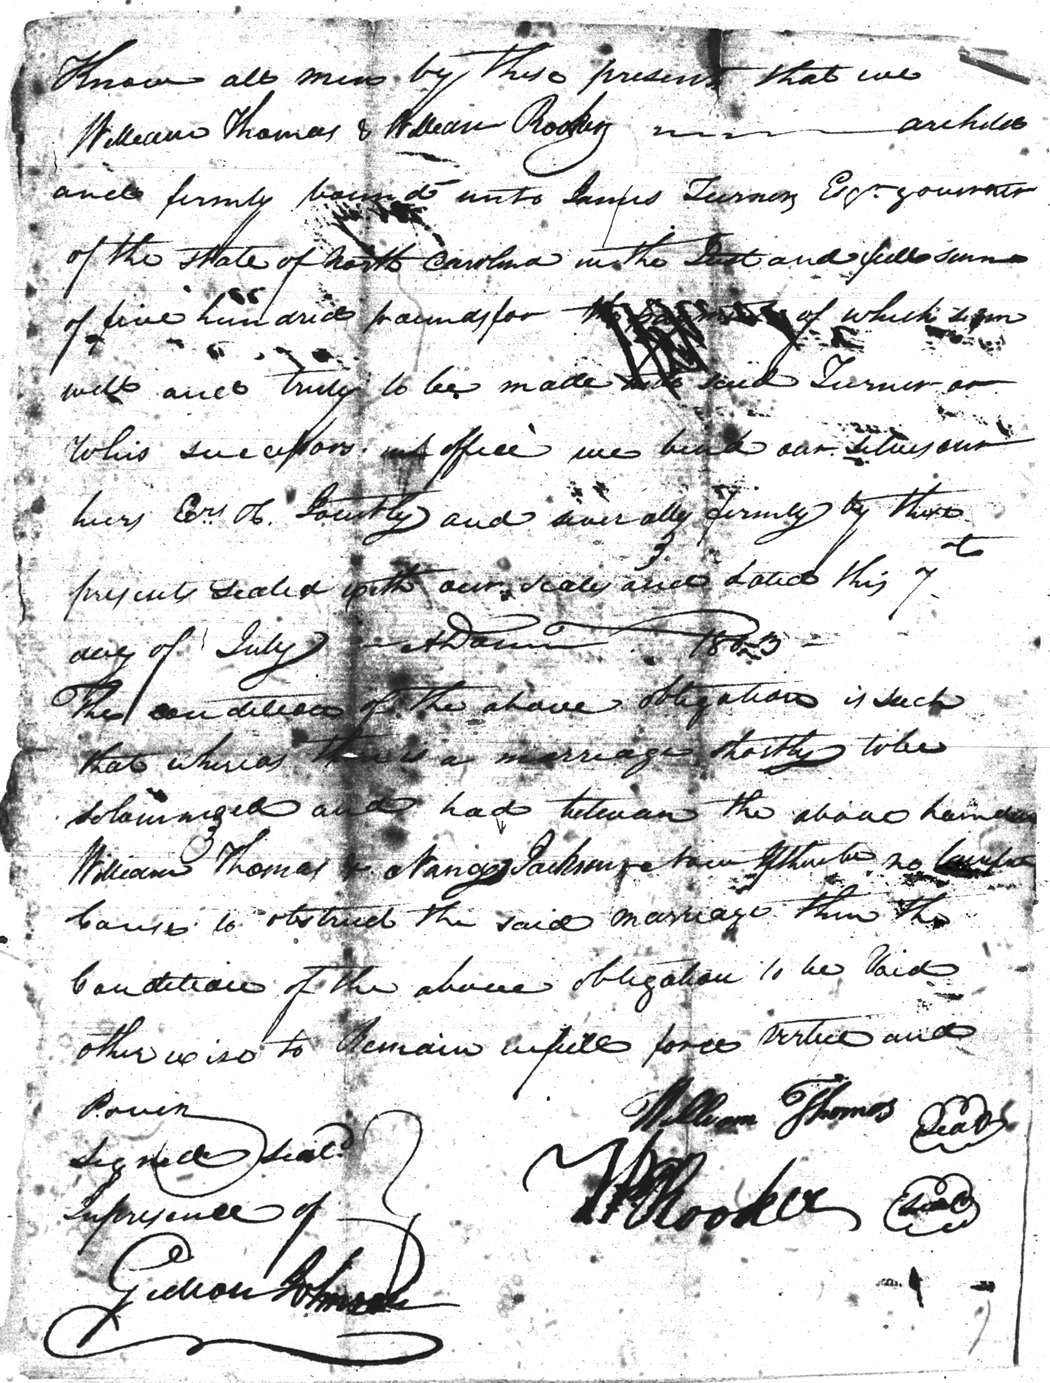 Know all men by these present that we
William Thomas & William Rooker are held
and firmly bound unto James Turner Esqr. governor
of the State of North Carolina in the Just and full sum
of five hundred pounds for the payment of which sum
well and truly to be made said Turner or
to his successors in office we bind our selves our
heirs Exrs &c. Jointly and severally firmly by these
presents sealed with our seals and dated this 7t
day of July ADom 1803
The condition of the above obligation is such
that whereas there is a marriage shortly to be
solamnized and had between the above
William Thomas & Nancy Jackson now if there be no
Cause to obstruct the said marriage then the
Condition of the above obligation to be Void
otherwise to Remain in full force Virtue and
Power
William Thomas Seal
Signed Seald
Wm Rooker Seal
In presence of
Gideon Johnson